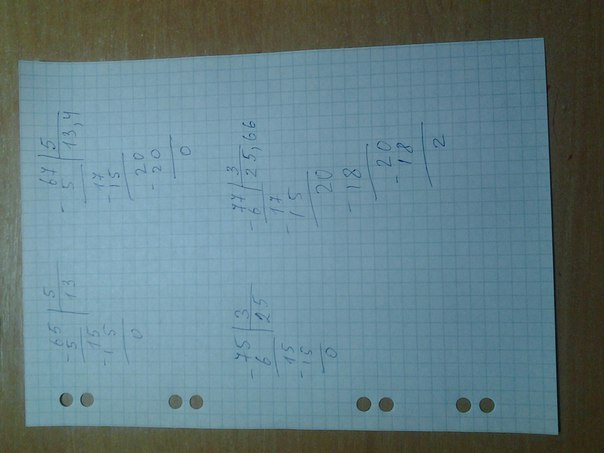 - 65 | 5
5 | 13
15
- 15
0
- 67 | 5
5 | 13,4
17
- 15
20
- 20
0
- 75 | 3
6 | 25
15
- 15
0
- 77 | 3
6 | 25,66
17
- 15
20
- 18
20
- 18
2